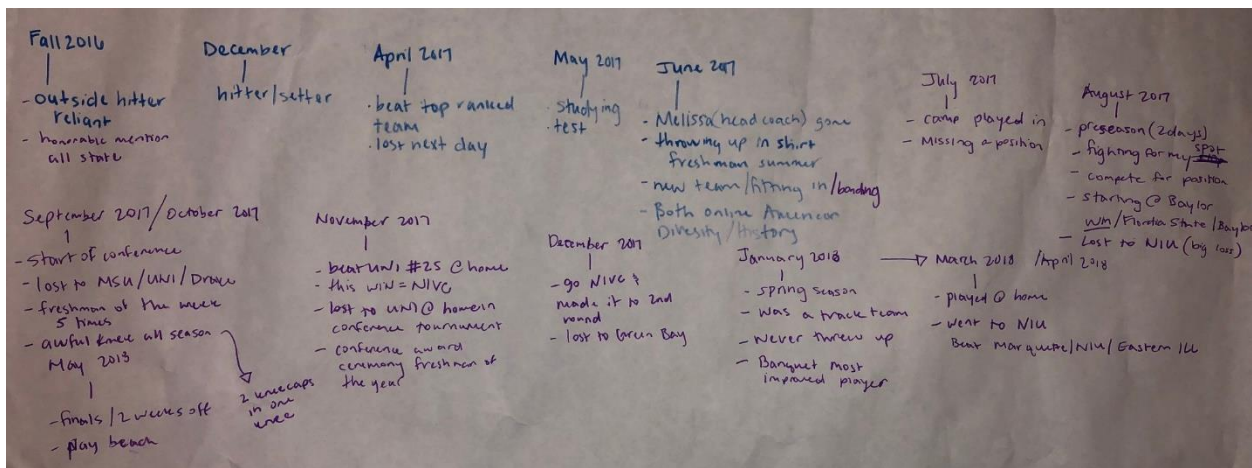 Fall 2016
- outside hitter
reliant
- honorable mention
all state
December
hitter/setter
April 2017
· beat top ranked
team
· lost next day
May 2017
· studying
· test
June 2017
- Melissa (head coach) gone
- throwing up in shirt
freshman summer
- new team/fitting in/bonding
- Both online American
Diversity/History
July 2017
- camp played in
- Missing a position
August 2017
- preseason (2 days)
- fighting for my spot
- compete for position
- starting @ Baylor
/Florida State/Baylor
- Lost to NIU (big loss)
September 2017/October 2017
- start of conference
- lost to MSU/UNI/Drake
- freshman of the week
5 times
- awful knee all season
2 kneecaps
in one
knee
November 2017
- beat UNI #25 @ home
- this win = NIVC
- lost to UNI @ home in
conference tournament
- conference award
ceremony freshman of
the year
December 2017
- go NIVC &
made it to 2nd
round
- lost to Green Bay
January 2018
- spring season
- was a track team
- Never threw up
- Banquet most
improved player
March 2018 /April 2018
- played @ home
- went to NIU
Beat Marquette/NIU/Eastern Ill
May 2018
- finals/2 weeks off
- play beach